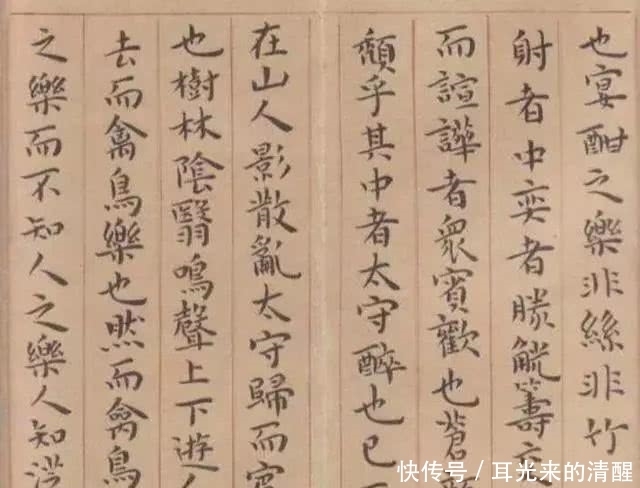 也宴酣之樂非絲非竹
射者中奕者勝觥籌
而諠譁者衆賓歡也蒼
頹乎其中者太守醉也已
在山人影散亂太守歸而賓
也樹林陰翳鳴聲上下遊人
去而禽鳥樂也然而禽鳥
之樂而不知人之樂人知
快传号/耳光来的清醒